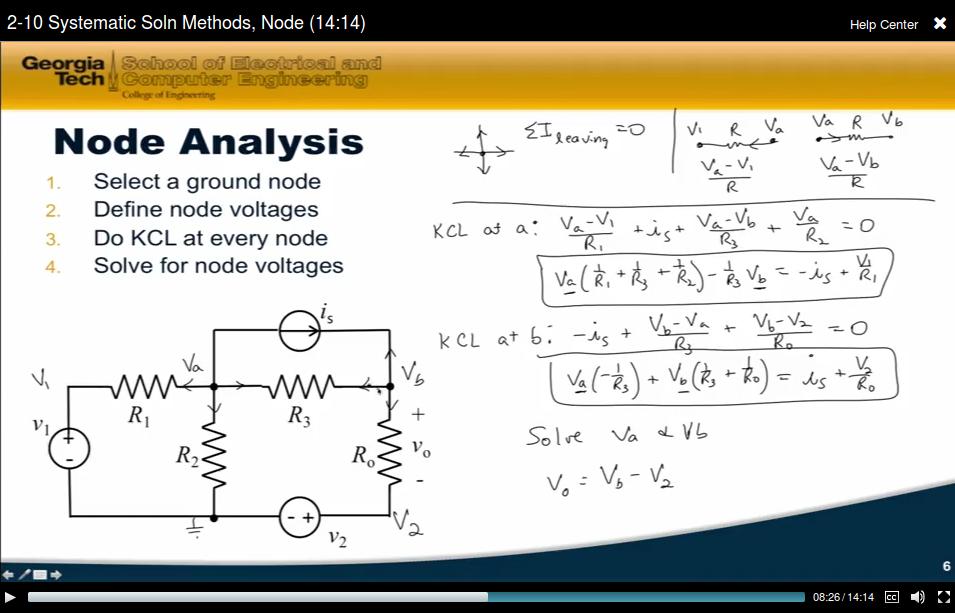 2-10 Systematic Soln Methods, Node (14:14)
Help Center ✖
Georgia Tech
School of Electrical and Computer Engineering
College of Engineering
Node Analysis
1. Select a ground node
2. Define node voltages
3. Do KCL at every node
4. Solve for node voltages
ΣI leaving = 0
V₁ R Va
(Va - V₁)/R
Va R Vb
(Va - Vb)/R
KCL at a: (Va - V₁)/R₁ + is + (Va - Vb)/R₃ + Va/R₂ = 0
Va(1/R₁ + 1/R₃ + 1/R₂) - 1/R₃ Vb = -is + V₁/R₁
KCL at b: -is + (Vb - Va)/R₃ + (Vb - V₂)/R₀ = 0
Va(-1/R₃) + Vb(1/R₃ + 1/R₀) = is + V₂/R₀
Solve Va & Vb
V₀ = Vb - V₂
is
V₁
Va
Vb
R₁
R₃
v₁
+
-
R₂
Rₒ
+
vₒ
-
- +
v₂
V₂
6
08:26 / 14:14 CC